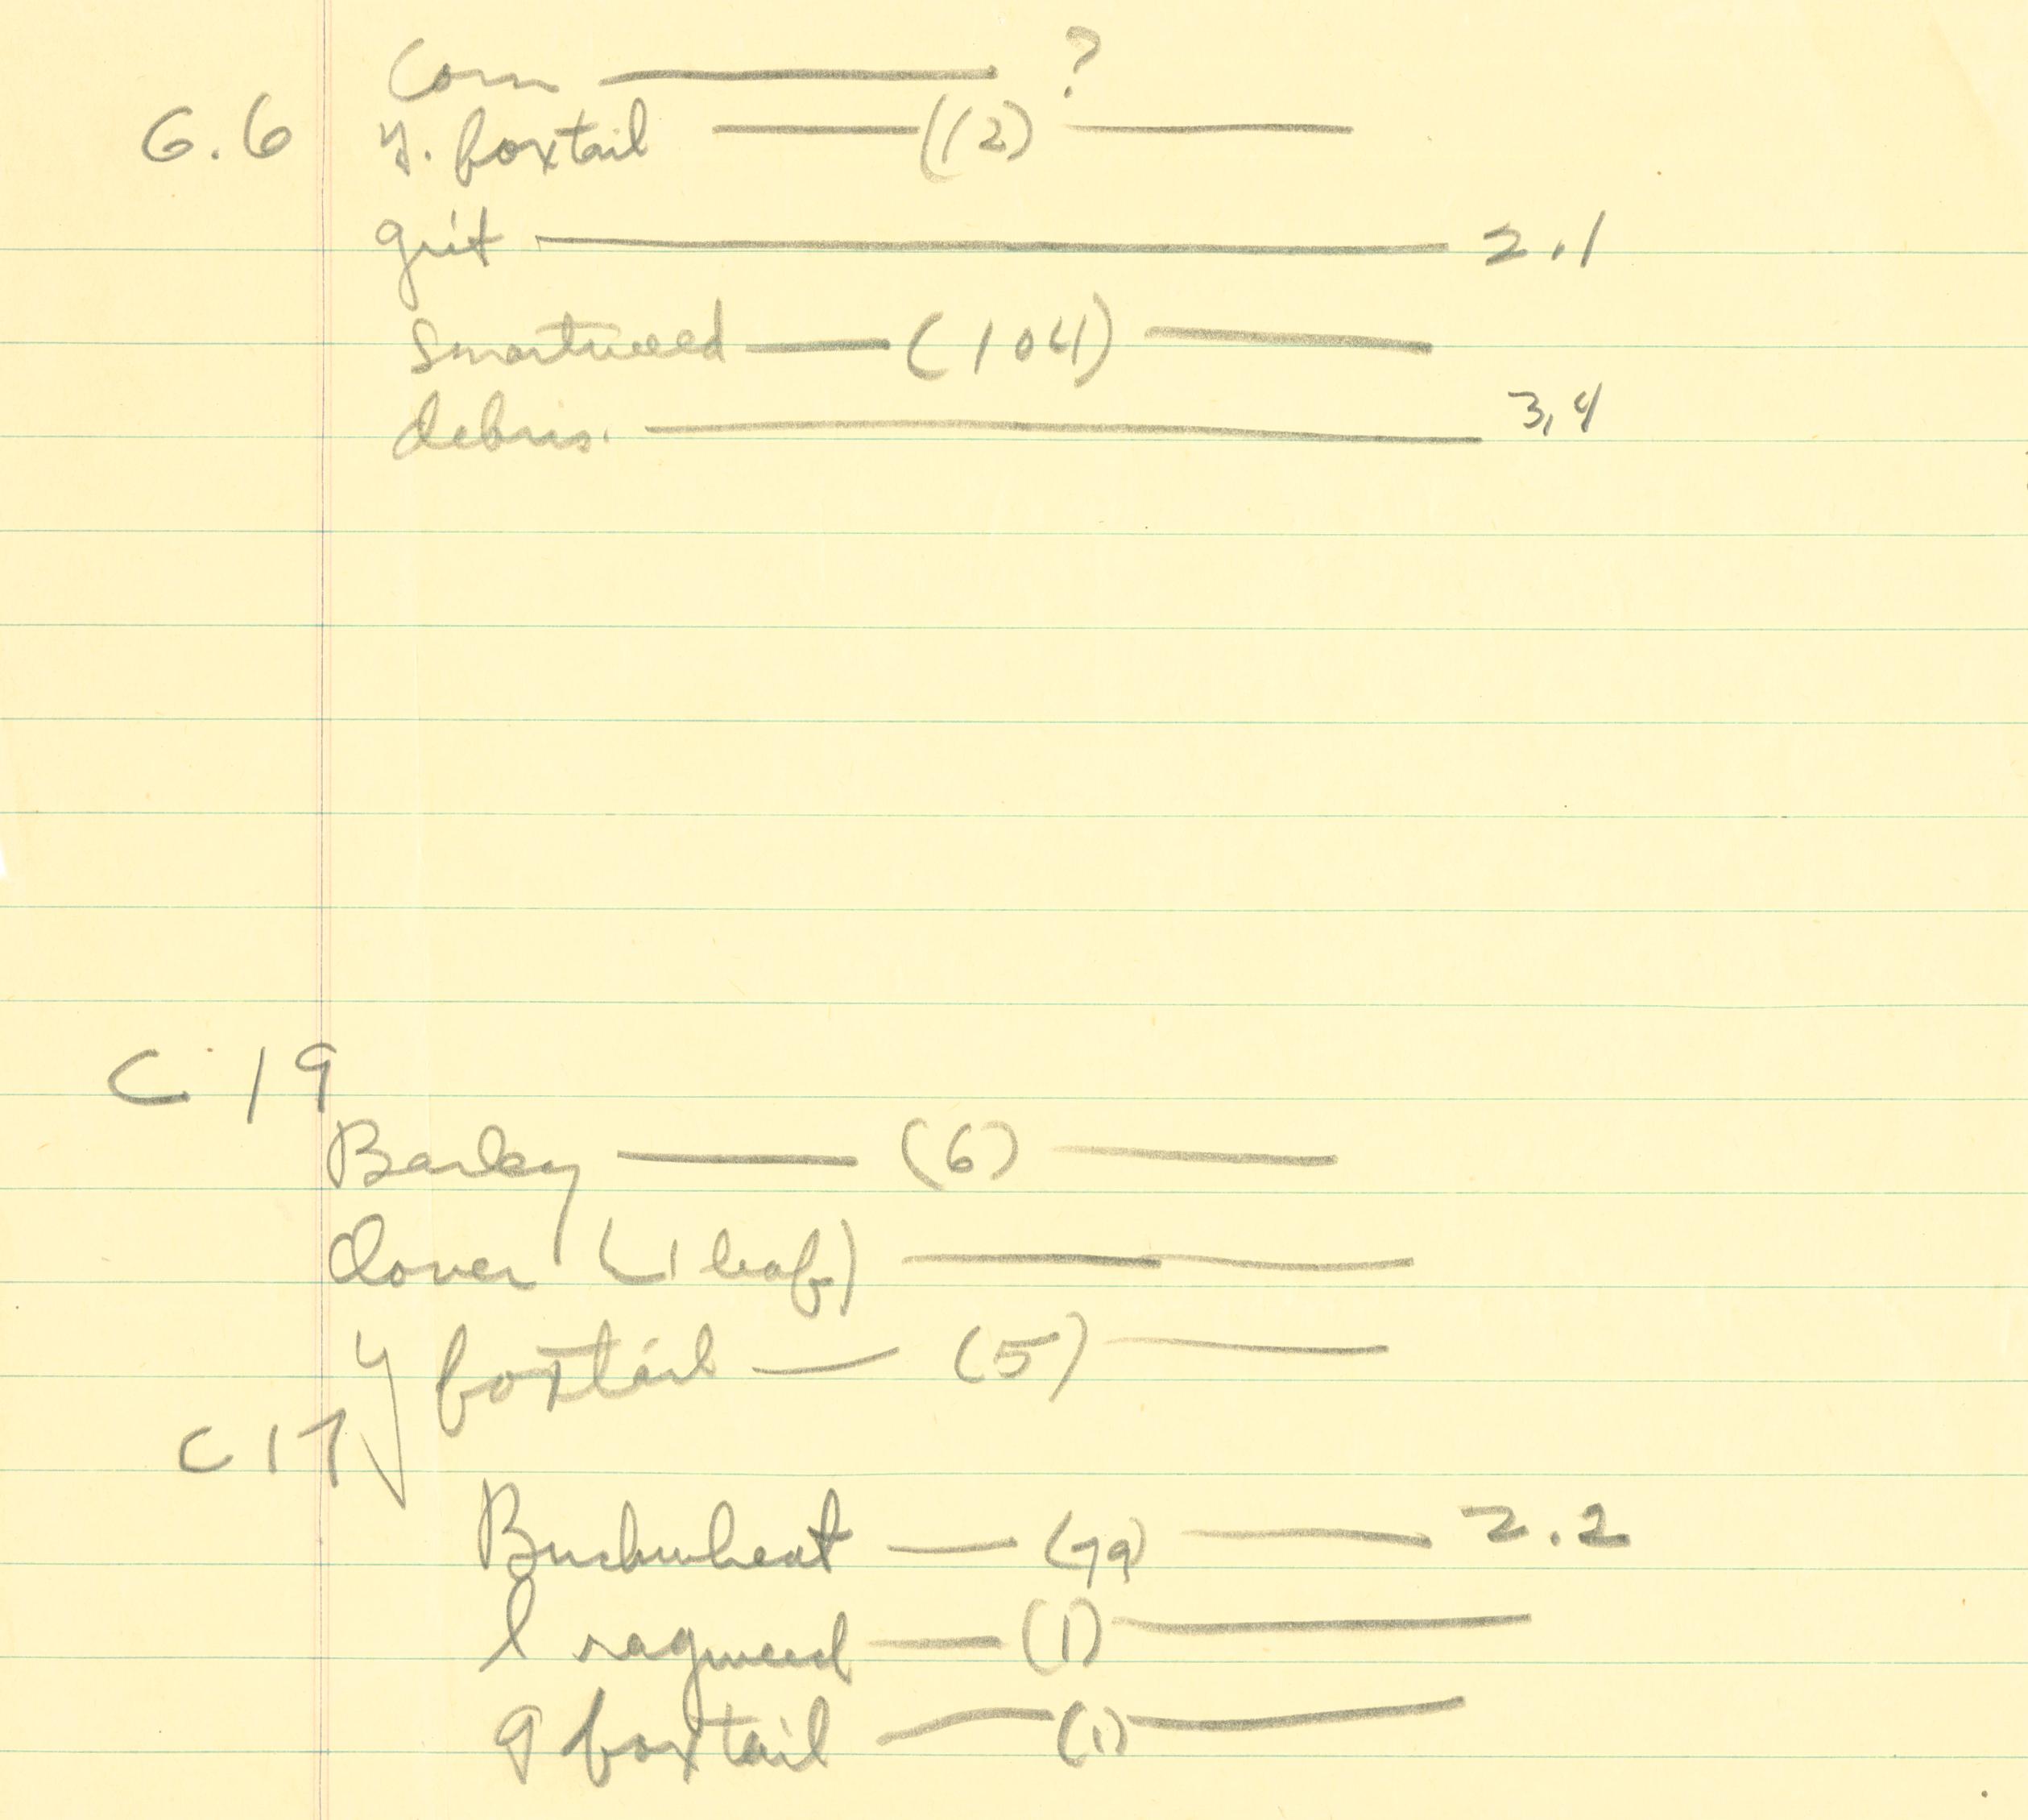 Corn ——— ?
G.6 Y. foxtail ——— (12) ———
grit ——— 2.1
Smartweed ——— (104) ———
debris. ——— 3.4
C 19
Barley ——— (6) ———
Clover (1 leaf) ———
Y foxtail — (5) ———
C 17
Buckwheat — (79) ——— 2.2
l ragweed — (1) ———
g foxtail — (1) ———